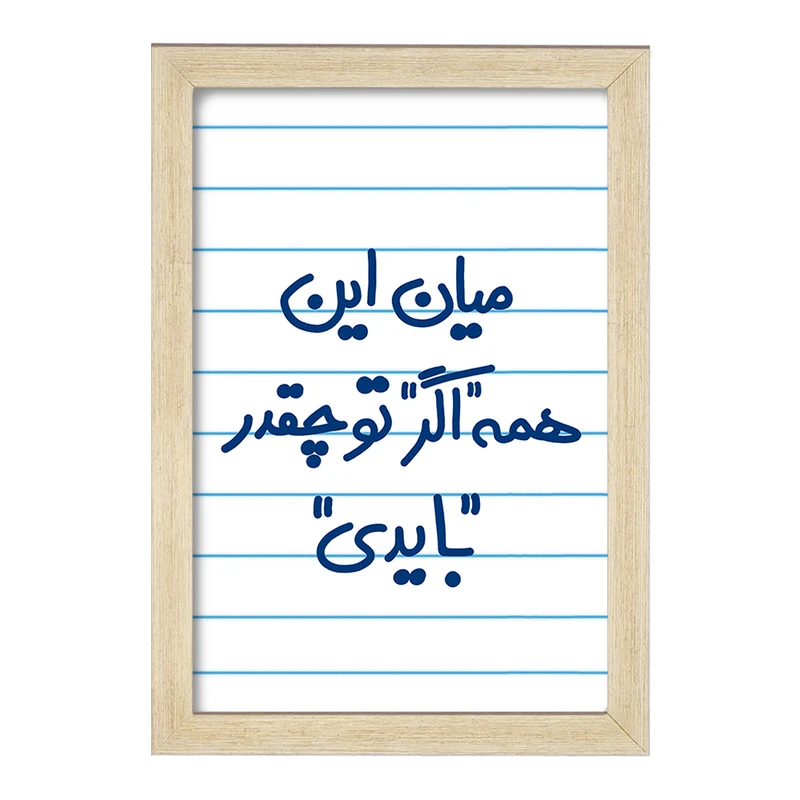 میان این
همه "اگر" تو چقدر
"بایدی"